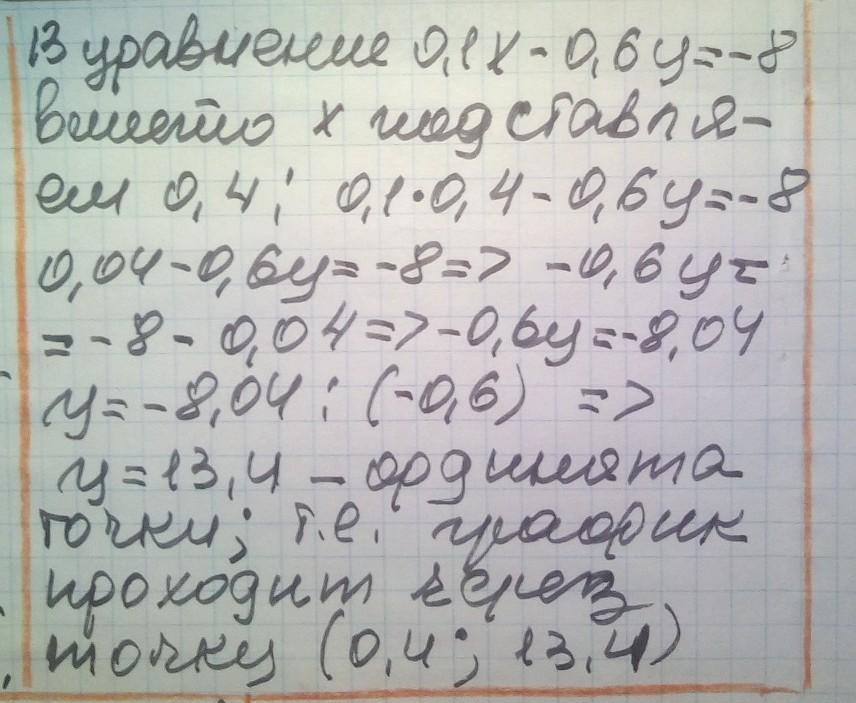 В уравнение 0,1х - 0,6у = -8
вместо х подставля-
ем 0,4; 0,1·0,4 - 0,6у = -8
0,04 - 0,6у = -8 => -0,6у =
= -8 - 0,04 => -0,6у = -8,04
у = -8,04 : (-0,6) =>
у = 13,4 - ордината
точки; т.е. график
проходит через
точку (0,4; 13,4)